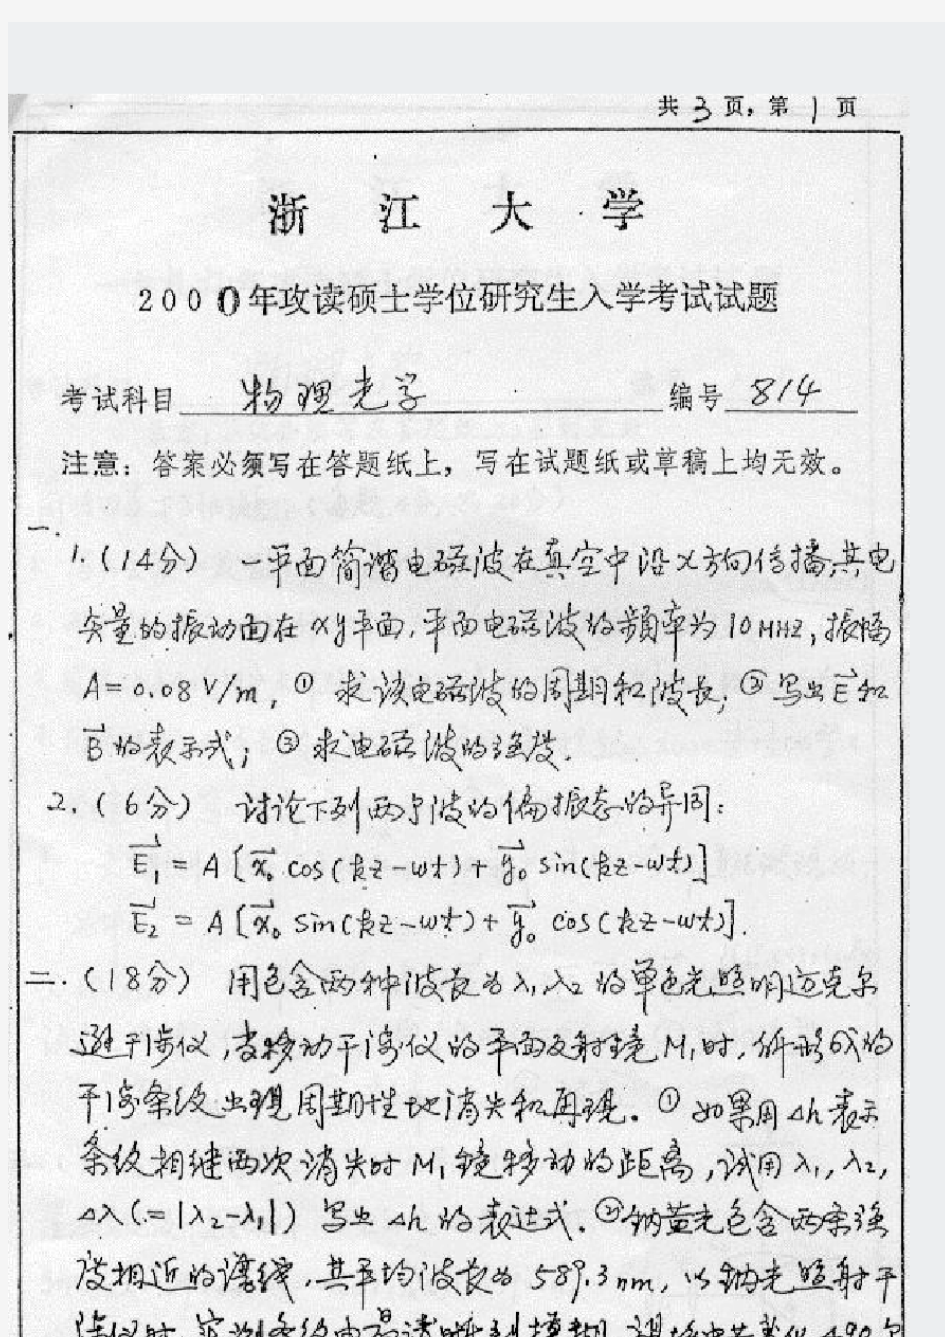 共 3 页，第 1 页
浙 江 大 学
2000年攻读硕士学位研究生入学考试试题
考试科目 物理光学 编号 814
注意：答案必须写在答题纸上，写在试题纸或草稿上均无效。
一.
1.(14分) 一平面简谐电磁波在真空中沿x方向传播,其电
矢量的振动面在xy平面,平面电磁波的频率为10MHz,振幅
A=0.08 V/m, ① 求该电磁波的周期和波长; ② 写出E⃗和
B⃗的表示式; ③ 求电磁波的强度.
2.(6分) 讨论下列两个波的偏振态的异同:
E⃗₁ = A [x⃗₀ cos(kz-ωt)+y⃗₀ sin(kz-ωt)]
E⃗₂ = A [x⃗₀ sin(kz-ωt)+y⃗₀ cos(kz-ωt)].
二.(18分) 用包含两种波长为λ₁,λ₂的单色光照明迈克尔
逊干涉仪,当移动干涉仪的平面反射镜M₁时,所形成的
干涉条纹出现周期性地消失和再现。① 如果用Δh表示
条纹相继两次消失时M₁镜移动的距离,试用λ₁,λ₂,
Δλ(=|λ₂-λ₁|) 写出Δh的表达式. ②钠黄光包含两条强
度相近的谱线,其平均波长为589.3nm,以钠光照射干